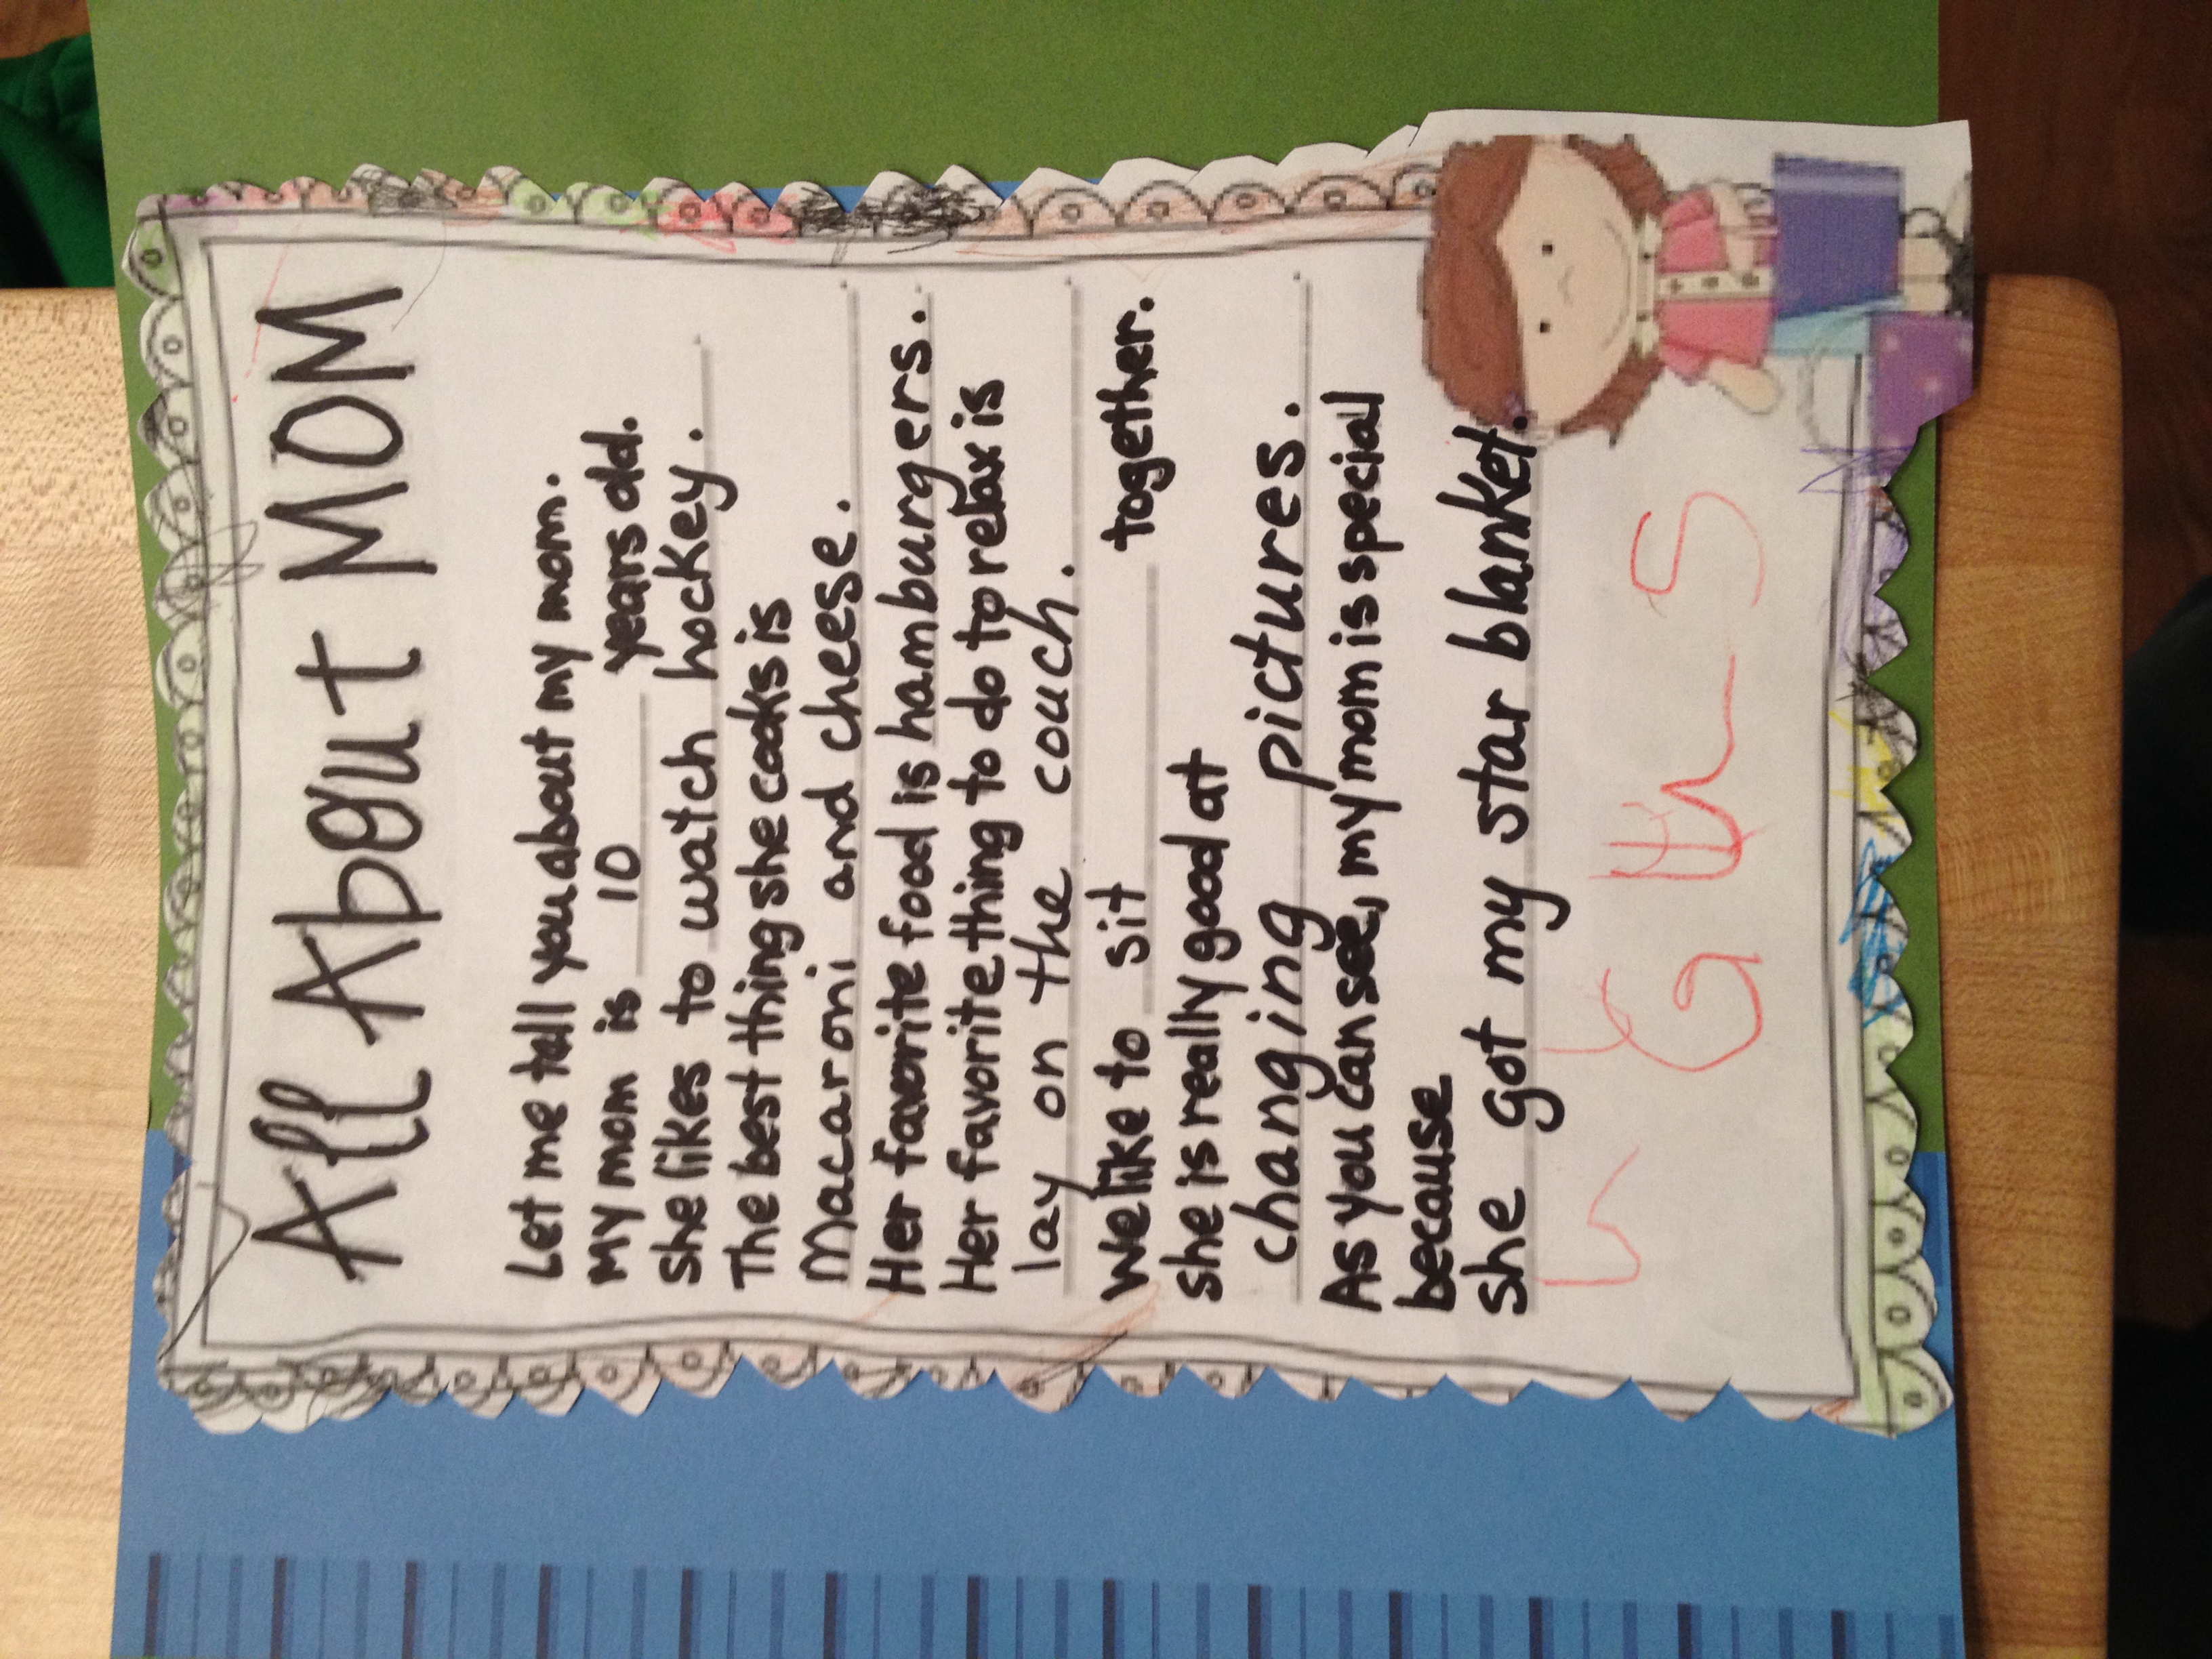 All About MOM
Let me tell you about my mom.
My mom is 10 years old.
She likes to watch hockey.
The best thing she cooks is
Macaroni and cheese.
Her favorite food is hamburgers.
Her favorite thing to do to relax is
lay on the couch.
We like to sit together.
She is really good at
changing pictures.
As you can see, my mom is special
because
she got my star blanket.
GUS